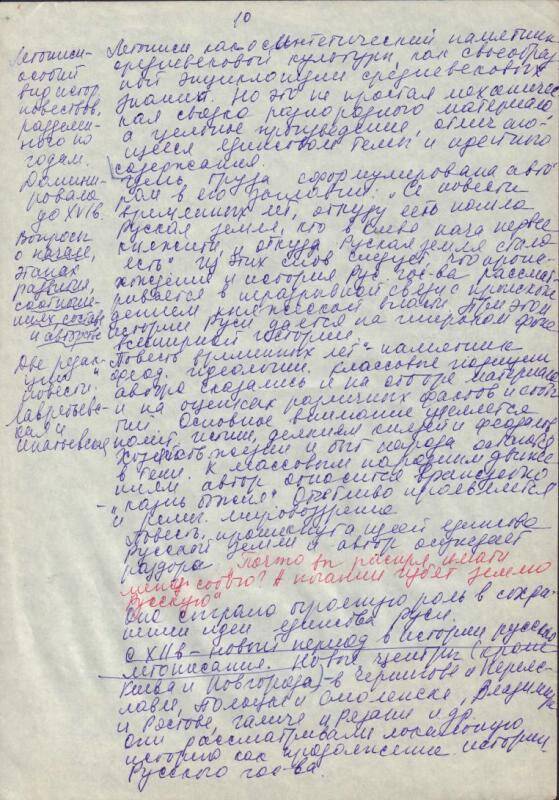 10
Летописи-
особый
вид истор.
повествов.
разделен-
ного по
годам.
Домини-
ровала
до XVIв.
Вопросы
о начале,
этапах
развития,
соотноше-
ниях состава
и авторстве
Две редак-
ции
"повести".
Лаврентьев-
ская и
Ипатьевская
Летописи как синтетический памятник
средневековой культуры, как своеобраз
ный энциклопедии средневековых
знаний. Но это не простая механичес
кая сводка разнородного материала
а цельное произведение, отличаю-
щееся единством темы и идейного
содержания.
Цель труда сформулирована авто
ром в его заглавии: "Се повести
временных лет, откуду есть пошла
Руская земля, кто в Киеве нача первее
княжити, и откуда Руская земля стала
есть" Из этих слов следует, что проис-
хождение и история Рус. гос-ва рассма
ривается в неразрывной связи с происхож
дением княжеской власти. При этом
история Руси дается на широком фоне
всемирной истории.
"Повесть временных лет" - памятник
феод. идеологии. Классовые позиции
автора сказались и на отборе материала
и на оценках различных фактов и собы
тий. Основное внимание уделяется
полит. истории, деяниям князей и феодалов
Хозяйств. жизнь и быт народа остаются
в тени. К массовым народным движе
ниям автор относится враждебно
- "казнь божия" Отчетливо проявляется
и религ. мировоззрение
Повесть проникнута идеей единства
Русской земли и автор осуждает
раздоры "почто вы распря имати
межи собою? А погании губят землю
Русскую"
Она сыграла огромную роль в сохра-
нении идеи единства Руси.
с XIIв - новый период в истории русского
летописания. Новые центры (кроме
Киева и Новгорода) - в Чернигове и Переяс
лавле, Полоцке и Смоленске, Владимире
и Ростове, Галиче и Рязани и др.
Они рассматривали локальную
историю как продолжение истории
Русского гос-ва.